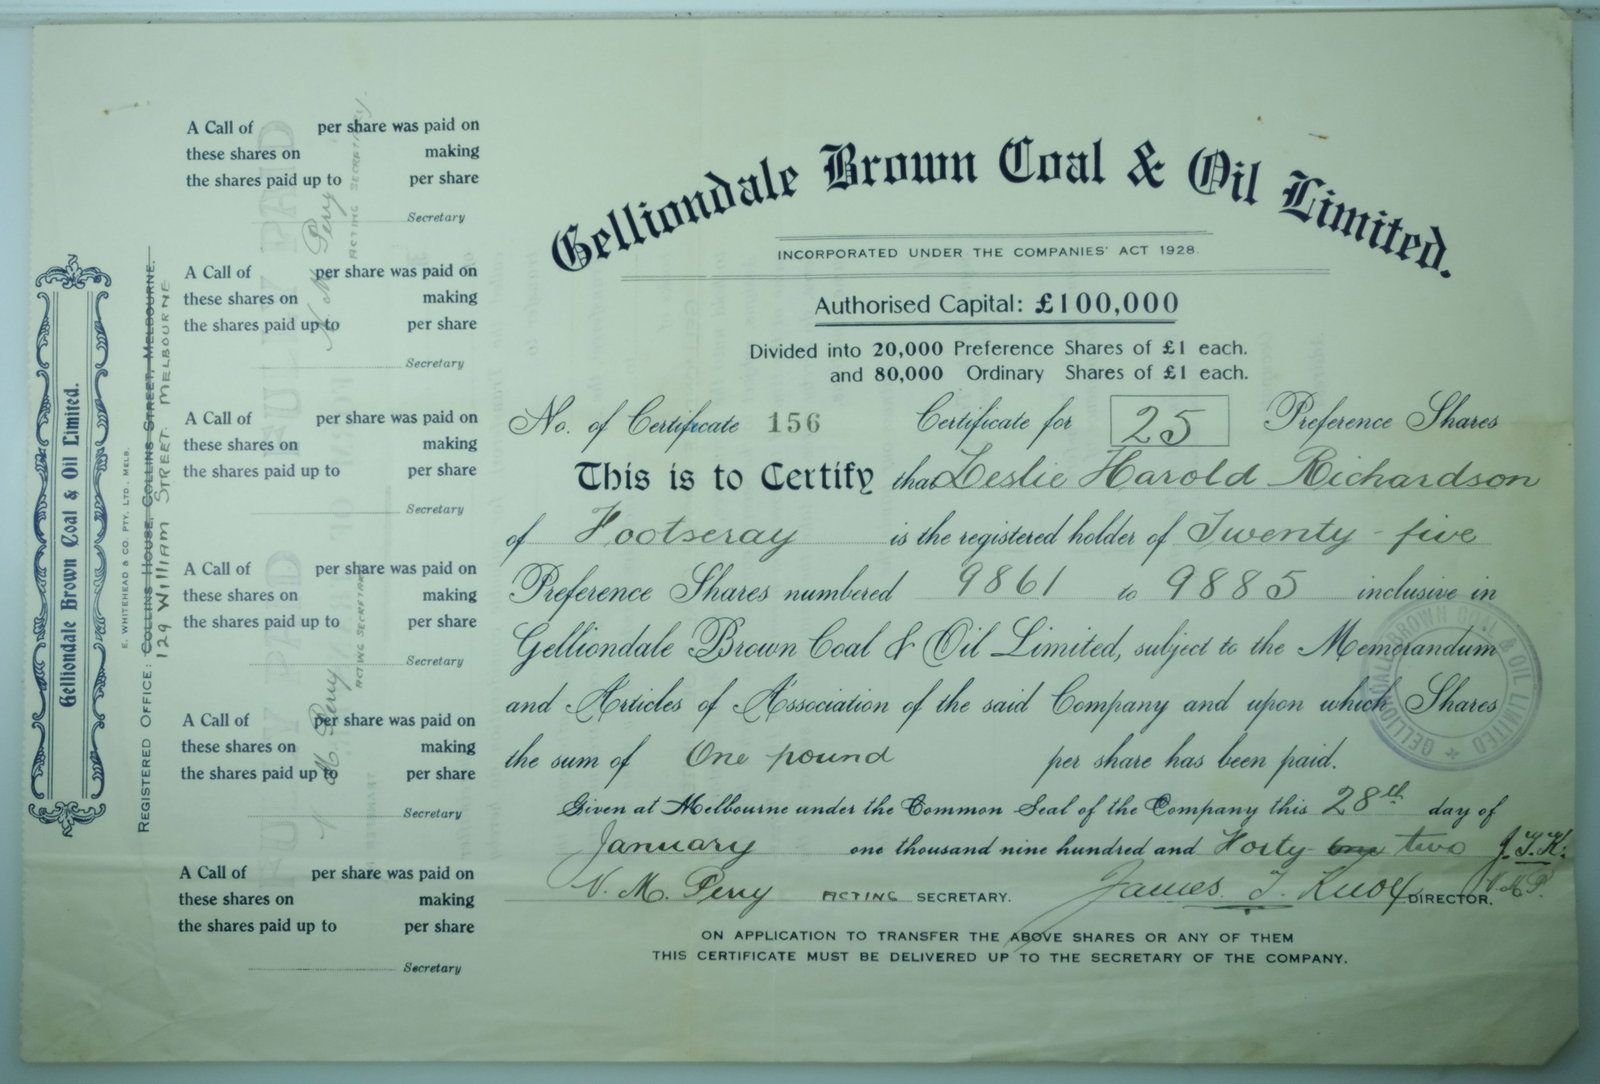 Gelliondale Brown Coal & Oil Limited.
INCORPORATED UNDER THE COMPANIES' ACT 1928.
Authorised Capital: £100,000
Divided into 20,000 Preference Shares of £1 each.
and 80,000 Ordinary Shares of £1 each.
No. of Certificate 156 Certificate for 25 Preference Shares
This is to Certify that Leslie Harold Richardson
of Footscray is the registered holder of Twenty-five
Preference Shares numbered 9861 to 9885 inclusive in
Gelliondale Brown Coal & Oil Limited, subject to the Memorandum
and Articles of Association of the said Company and upon which Shares
the sum of One pound per share has been paid.
Given at Melbourne under the Common Seal of the Company this 28th day of
January one thousand nine hundred and Forty one two J.T.K.
V. M. Perry ACTING SECRETARY. James T. Knox DIRECTOR. V.M.P.
ON APPLICATION TO TRANSFER THE ABOVE SHARES OR ANY OF THEM
THIS CERTIFICATE MUST BE DELIVERED UP TO THE SECRETARY OF THE COMPANY.
GELLIONDALE BROWN COAL & OIL LIMITED
A Call of per share was paid on
these shares on making
the shares paid up to per share
Secretary
A Call of per share was paid on
these shares on making
the shares paid up to per share
Secretary
A Call of per share was paid on
these shares on making
the shares paid up to per share
Secretary
A Call of per share was paid on
these shares on making
the shares paid up to per share
Secretary
A Call of per share was paid on
these shares on making
the shares paid up to per share
Secretary
A Call of per share was paid on
these shares on making
the shares paid up to per share
Secretary
FULLY PAID
V. M. Perry
ACTING SECRETARY.
FULLY PAID
V. M. Perry
ACTING SECRETARY
Gelliondale Brown Coal & Oil Limited.
E. WHITEHEAD & CO. PTY. LTD., MELB.
REGISTERED OFFICE: COLLINS HOUSE, COLLINS STREET, MELBOURNE.
129 WILLIAM STREET MELBOURNE